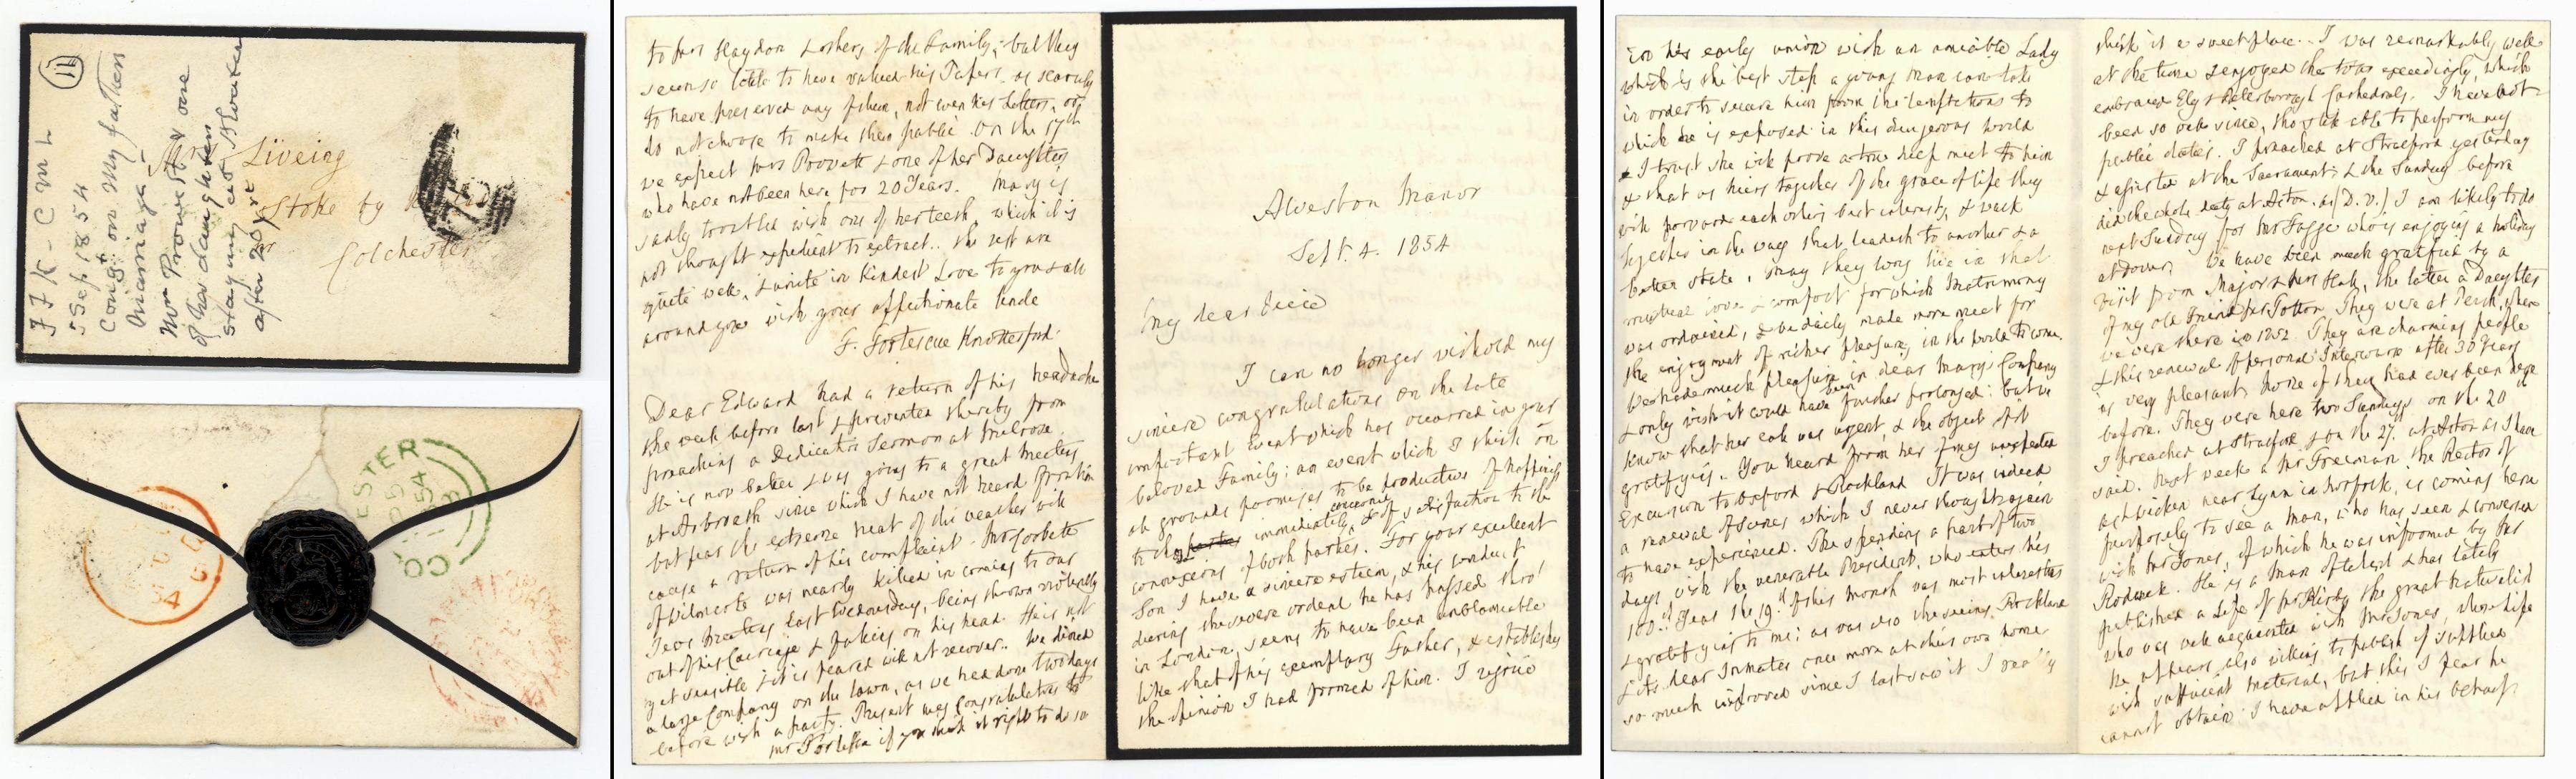 11
F F K - C M L
5 Sep 1854
Congt on my fathers
marriage
Mrs Prowett & one
of her daughters
staying at Alveston
after 20 yrs
Mrs Liveing
Stoke by
nr
Colchester
ESTER
54
CO
Alveston Manor
Sept. 4. 1854
My dear Niece
I can no longer withold my
sincere congratulations on the late
important Event which has occurred in your
beloved Family; an event which I think on
all grounds promises to be productive of happiness
to the parties immediately concerned, & of satisfaction to the
connexions of both parties. For your excellent
Son I have a sincere esteem, & his conduct
during the severe ordeal he has passed thro'
in London, seems to have been unblameable
like that of his exemplary Father, & establishes
the opinion I had formed of him. I rejoice
in his early union with an amiable Lady
which is the best step a young man can take
in order to secure him from the temptations to
which he is exposed in this dangerous world
& I trust she will prove a true help meet to him
& that as heirs together of the grace of life they
will forward each others best interests, & walk
together in the way that leadeth to another & a
better state, may they long live in that
mutual love & comfort for which Matrimony
was ordained, & be daily made more meet for
the enjoyment of richer pleasures in the world to come.
We had much pleasure in dear Mary's Company
& only wish it could have been further prolonged: but we
know that her call was urgent, & the object of it
gratifying. You heard from her of my unexpected
Excursion to Oxford & Rockland It was indeed
a renewal of scenes which I never thought again
to have experienced. The spending a part of two
days with the venerable President, who enters his
100th Year the 19th of this month was most interesting
& gratifying to me; as was also the seeing Rockland
& its dear Inmates once more at their own home
so much improved since I last saw it I really
think it a sweet place.. I was remarkably well
at the time & enjoyed the tour exceedingly, which
embraced Ely & Peterborough Cathedrals. I have not
been so well since, tho' still able to perform my
public duties. I preached at Stratford yesterday
& assisted at the Sacrament; & the Sunday before
did the whole duty at Acton. as (D.V.) I am likely to do
next Sunday for Mr Fagge who is enjoying a holiday
at Dover. We have been much gratified by a
visit from Major & Mrs the latter a Daughter
of my old Friend Mrs Totton. They were at Perth, when
we were there in 1852. They are charming people
& this renewal of personal Intercourse after 30 Years
is very pleasant. None of them had ever been here
before. They were here two Sundays on the 20th
I preached at Stratford & on the 27. at Acton as I have
said. Next week a Mr Freeman the Rector of
Ashwicken near Lynn in Norfolk, is coming here
purposely to see a Man, who has seen & conversed
with Mr Jones, of which he was informed by Mr
Rodwell. He is a Man of talent & has lately
published a Life of Mr Kirby the great Naturalist
who was well acquainted with Mr Jones, whose life
he appears also willing to publish if supplied
with sufficient material, but this I fear he
cannot obtain I have applied in his behalf
to Mrs Haydon & others of the Family; but they
seem so little to have valued his Papers as scarcely
to have preserved any of them, not even his Letters, or
do not choose to make them public. On the 17th
we expect Mrs Prowett & one of her Daughters
who have not been here for 20 Years. Mary is
sadly troubled with one of her teeth, which it is
not thought expedient to extract.. The rest are
quite well, & unite in kindest Love to you & all
around you with your affectionate Uncle
F. Fortescue Knottesford.
Dear Edward had a return of his headache
the week before last & prevented thereby from
preaching a Dedication Sermon at Melrose.
He is now better & was going to a great Meeting
at Arbroath since which I have not heard from him
but fear the extreme heat of the weather will
cause a return of his complaint. Mr Corbett
of Wilmcote was nearly killed in coming to our
Jews Meeting last Wednesday, being thrown violently
out of his Carriage & falling on his head. He is not
yet sensible & it is feared will not recover.. We dined
a large Company on the lawn, as we had done two days
before with a party. Present my Congratulations to
Mr if you think it right to do so